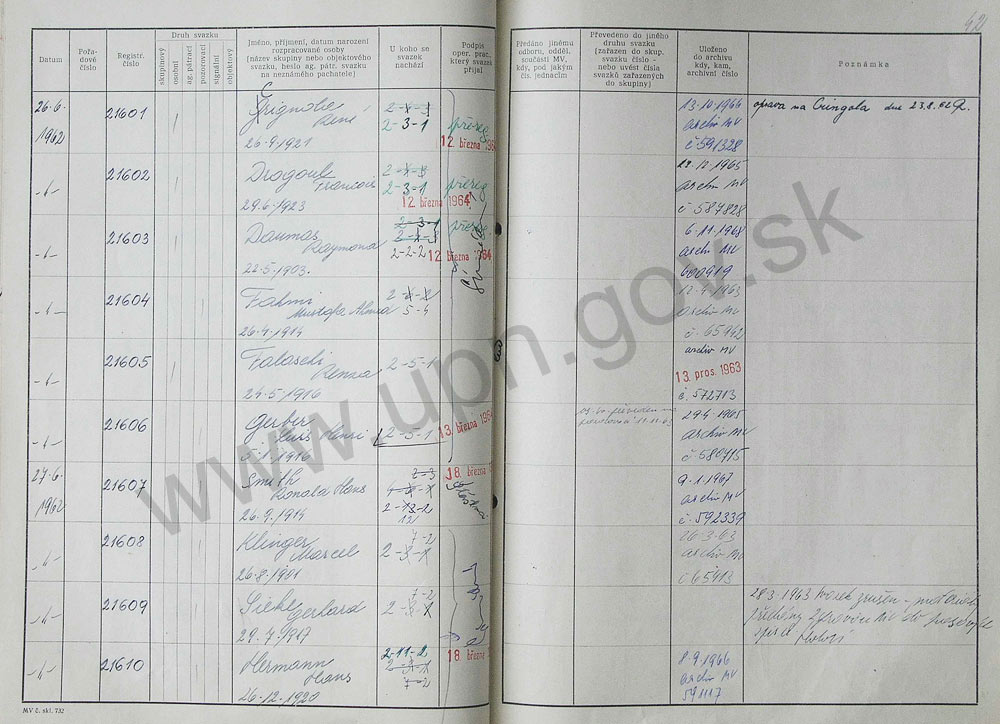 42
Datum
Pořadové číslo
Registr. číslo
Druh svazku
skupinový
osobní
ag. pátrací
pozorovací
signální
objektový
Jméno, příjmení, datum narození
rozpracované osoby
(název skupiny nebo objektového
svazku, heslo ag. pátr. svazku
na neznámého pachatele)
U koho se
svazek
nachází
Podpis
oper. prac.,
který svazek
přijal
Předáno jinému
odboru, odděl.
součásti MV,
kdy, pod jakým
čís. jednacím
Převedeno do jiného
druhu svazku
(zařazen do skup.
svazku číslo -
nebo uvést čísla
svazků zařazených
do skupiny)
Uloženo
do archivu
kdy, kam,
archivní číslo
Poznámka
26.6.
1962
21601
Grignobe
René
26.9.1921
2-3-1
přereg
12. března 1964
13.10.1966
archiv MV
č. 591328
oprava na Cringola dne 23.8.62
-"-
21602
Dragoul
Francois
29.6.1923
2-3-1
přereg
12. března 1964
22.12.1965
archiv MV
č. 587828
-"-
21603
Daumas
Raymona
22.5.1903.
2-3-1
2-2-2
přereg
12. března 1964
6.11.1968
archiv MV
600919
-"-
21604
Fahmi
Mustafa Ahmed
26.4.1914
5-4
12.4.1963
archiv MV
č. 65942
-"-
21605
Falaschi
Renza
24.5.1916
2-5-1
archiv MV
13. pros. 1963
č. 572713
-"-
21606
Gerber
Louis Henri
5.1.1916
2-5-1
13. března 1964
29.4.1965
archiv MV
č. 580715
27.6.
1962
21607
Smith
Ronald Hans
26.9.1914
2-3
2-13-2
12
18. března
9.1.1967
archiv MV
č. 592339
-"-
21608
Klinger
Marcel
26.8.1901
7-2
2-3-1
26.3.63
archiv MV
č. 65413
-"-
21609
Gerhard
29.7.1917
7-2
28.3.1963 svazek zrušen
-"-
21610
Hermann
Hans
26.12.1920
2-11-2
2-3-1
7-2
18. března
8.9.1966
archiv MV
591117
MV č. skl. 732
www.upn.gov.sk